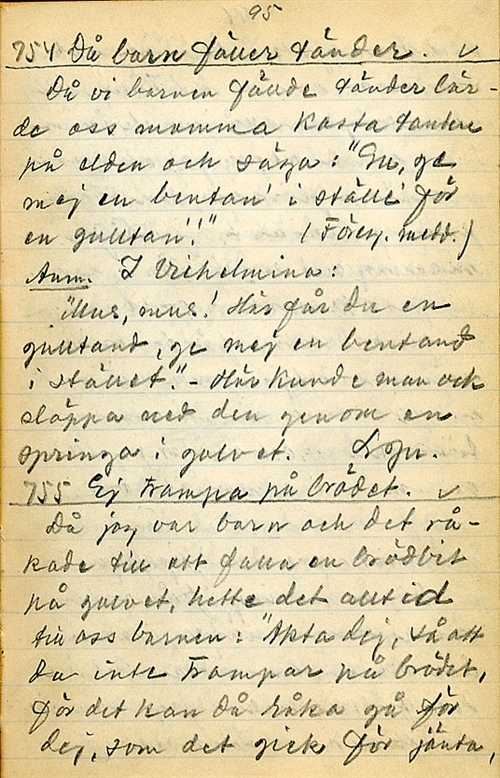 95
754 Då barn fäller tänder. ✓
Då vi barnen fällde tänder lär-
de oss mamma kasta tanden
på elden och säga: "Eu, ge
mej en bentan' i ställe' för
en gulltan'!" (Föresj. medd.)
Anm. I Vilhelmina:
"Mus, mus! Här får du en
gulltand, ge mej en bentand
i stället." - Här kunde man ock
släppa ned den genom en
springa i golvet.
755 Ej trampa på brödet. ✓
Då jag var barn och det rå-
kade till att falla en brödbit
på golvet, hette det alltid
till oss barnen: "Akta dej, så att
du inte trampar på brödet,
för det kan då råka gå för
dej, som det gick för jänta,